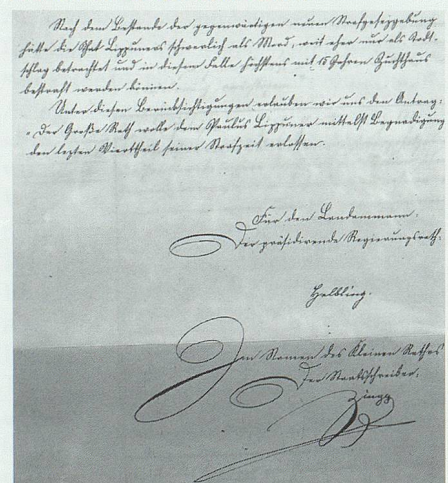 Nach dem Bestande der gegenwärtigen neuen Strafgesetzgebung
hätte die That Lippuners schwerlich als Mord, weit eher nur als Todt-
schlag betrachtet und in diesem Falle höchstens mit 15 Jahren Zuchthaus
bestraft werden können.
Unter diesen Berücksichtigungen erlauben wir uns den Antrag:
"Der Große Rath wolle dem Paulus Lippuner mittelst Begnadigung
den lezten Viertheil seiner Strafzeit erlassen.
Für den Landammann:
Der präsidirende Regierungsrath:
Helbling.
Im Namen des Kleinen Rathes
Der Staatsschreiber:
Zingg